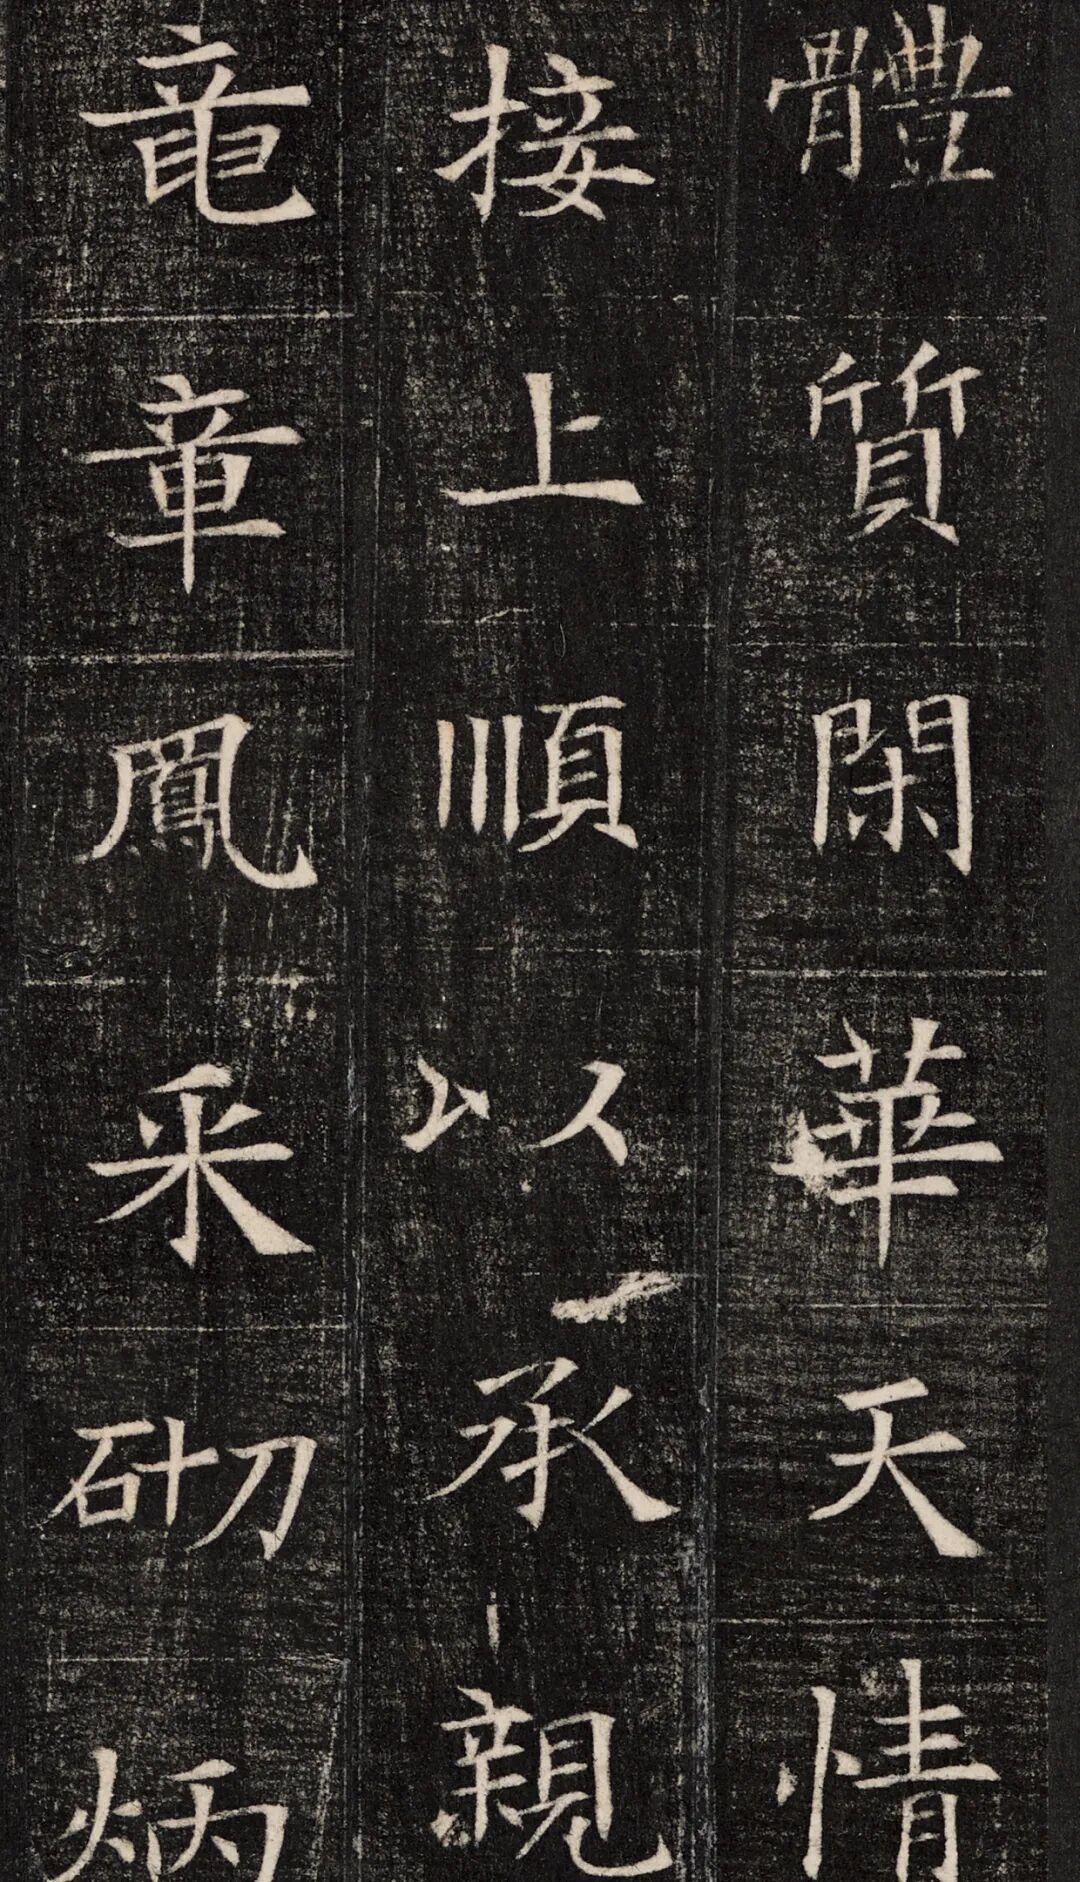 體質閑華天情
接上順以承親
竜章鳳采砌炳